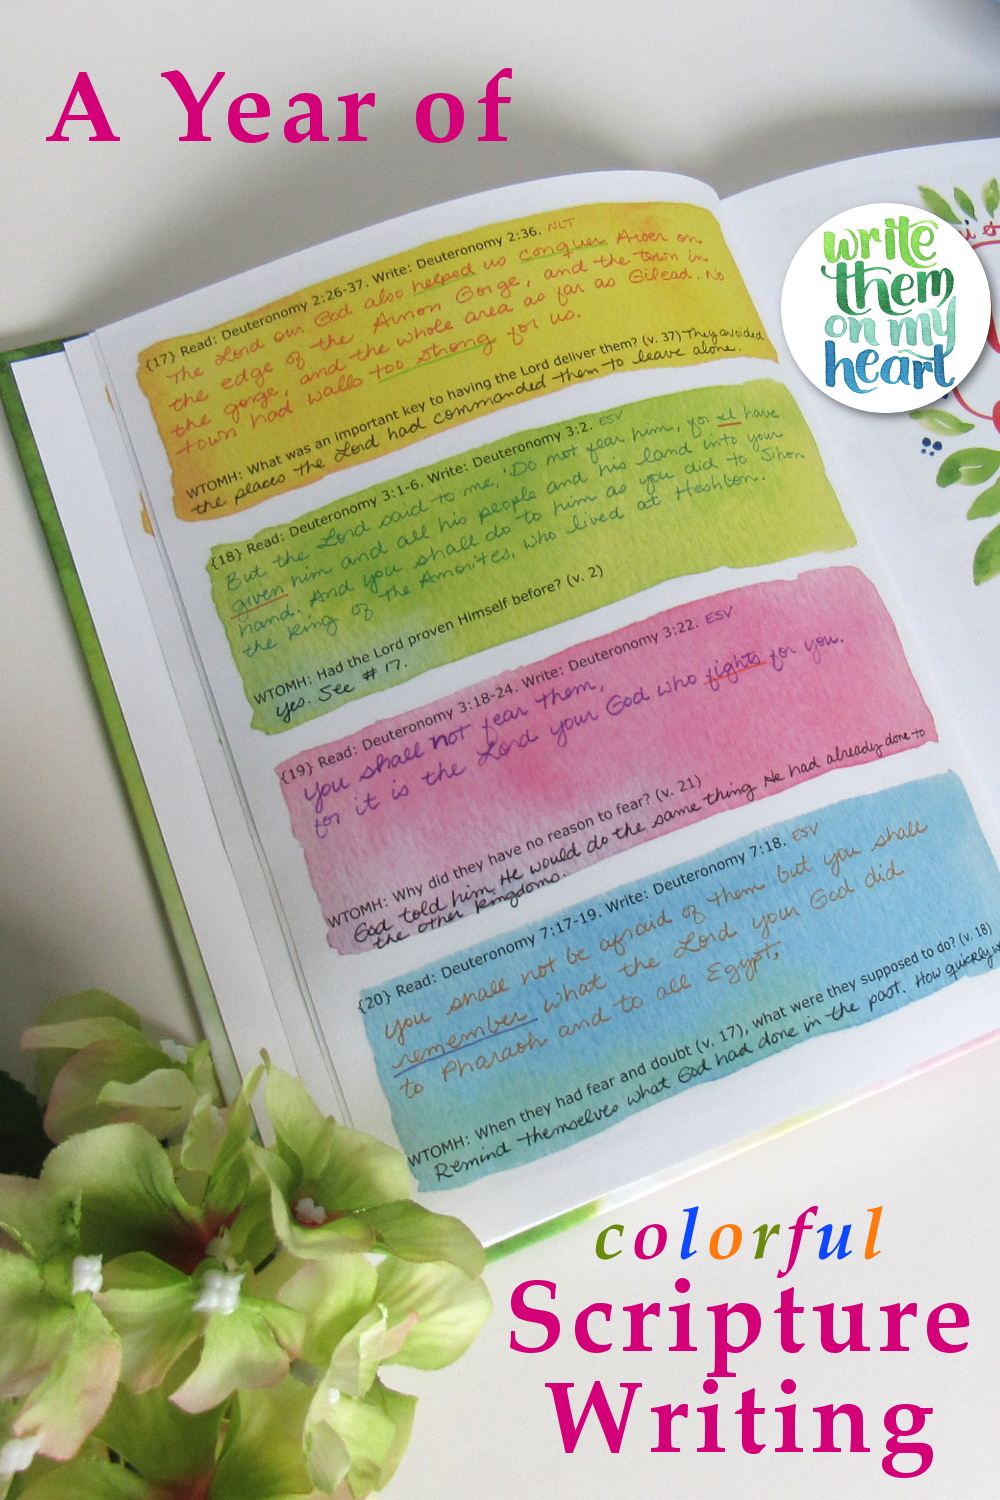 A Year of
write
them
on my
heart
{17} Read: Deuteronomy 2:26-37. Write: Deuteronomy 2:36. NLT
The Lord our God also helped us conquer Aroer on
the edge of the Arnon Gorge, and the town in
the gorge, and the whole area as far as Gilead. No
town had walls too strong for us.
WTOMH: What was an important key to having the Lord deliver them? (v. 37) They avoided
the places the Lord had commanded them to leave alone.
{18} Read: Deuteronomy 3:1-6. Write: Deuteronomy 3:2. ESV
But the Lord said to me, 'Do not fear him, for I have
given him and all his people and his land into your
hand. And you shall do to him as you did to Sihon
the king of the Amorites, who lived at Heshbon.
WTOMH: Had the Lord proven Himself before? (v. 2)
yes. See #17.
{19} Read: Deuteronomy 3:18-24. Write: Deuteronomy 3:22. ESV
you shall not fear them,
for it is the Lord your God who fights for you.
WTOMH: Why did they have no reason to fear? (v. 21)
God told him He would do the same thing He had already done to
the other kingdoms.
{20} Read: Deuteronomy 7:17-19. Write: Deuteronomy 7:18. ESV
you shall not be afraid of them but you shall
remember what the Lord your God did
to Pharaoh and to all Egypt,
WTOMH: When they had fear and doubt (v. 17), what were they supposed to do? (v. 18)
Remind themselves what God had done in the past. How quickly
colorful
Scripture
Writing